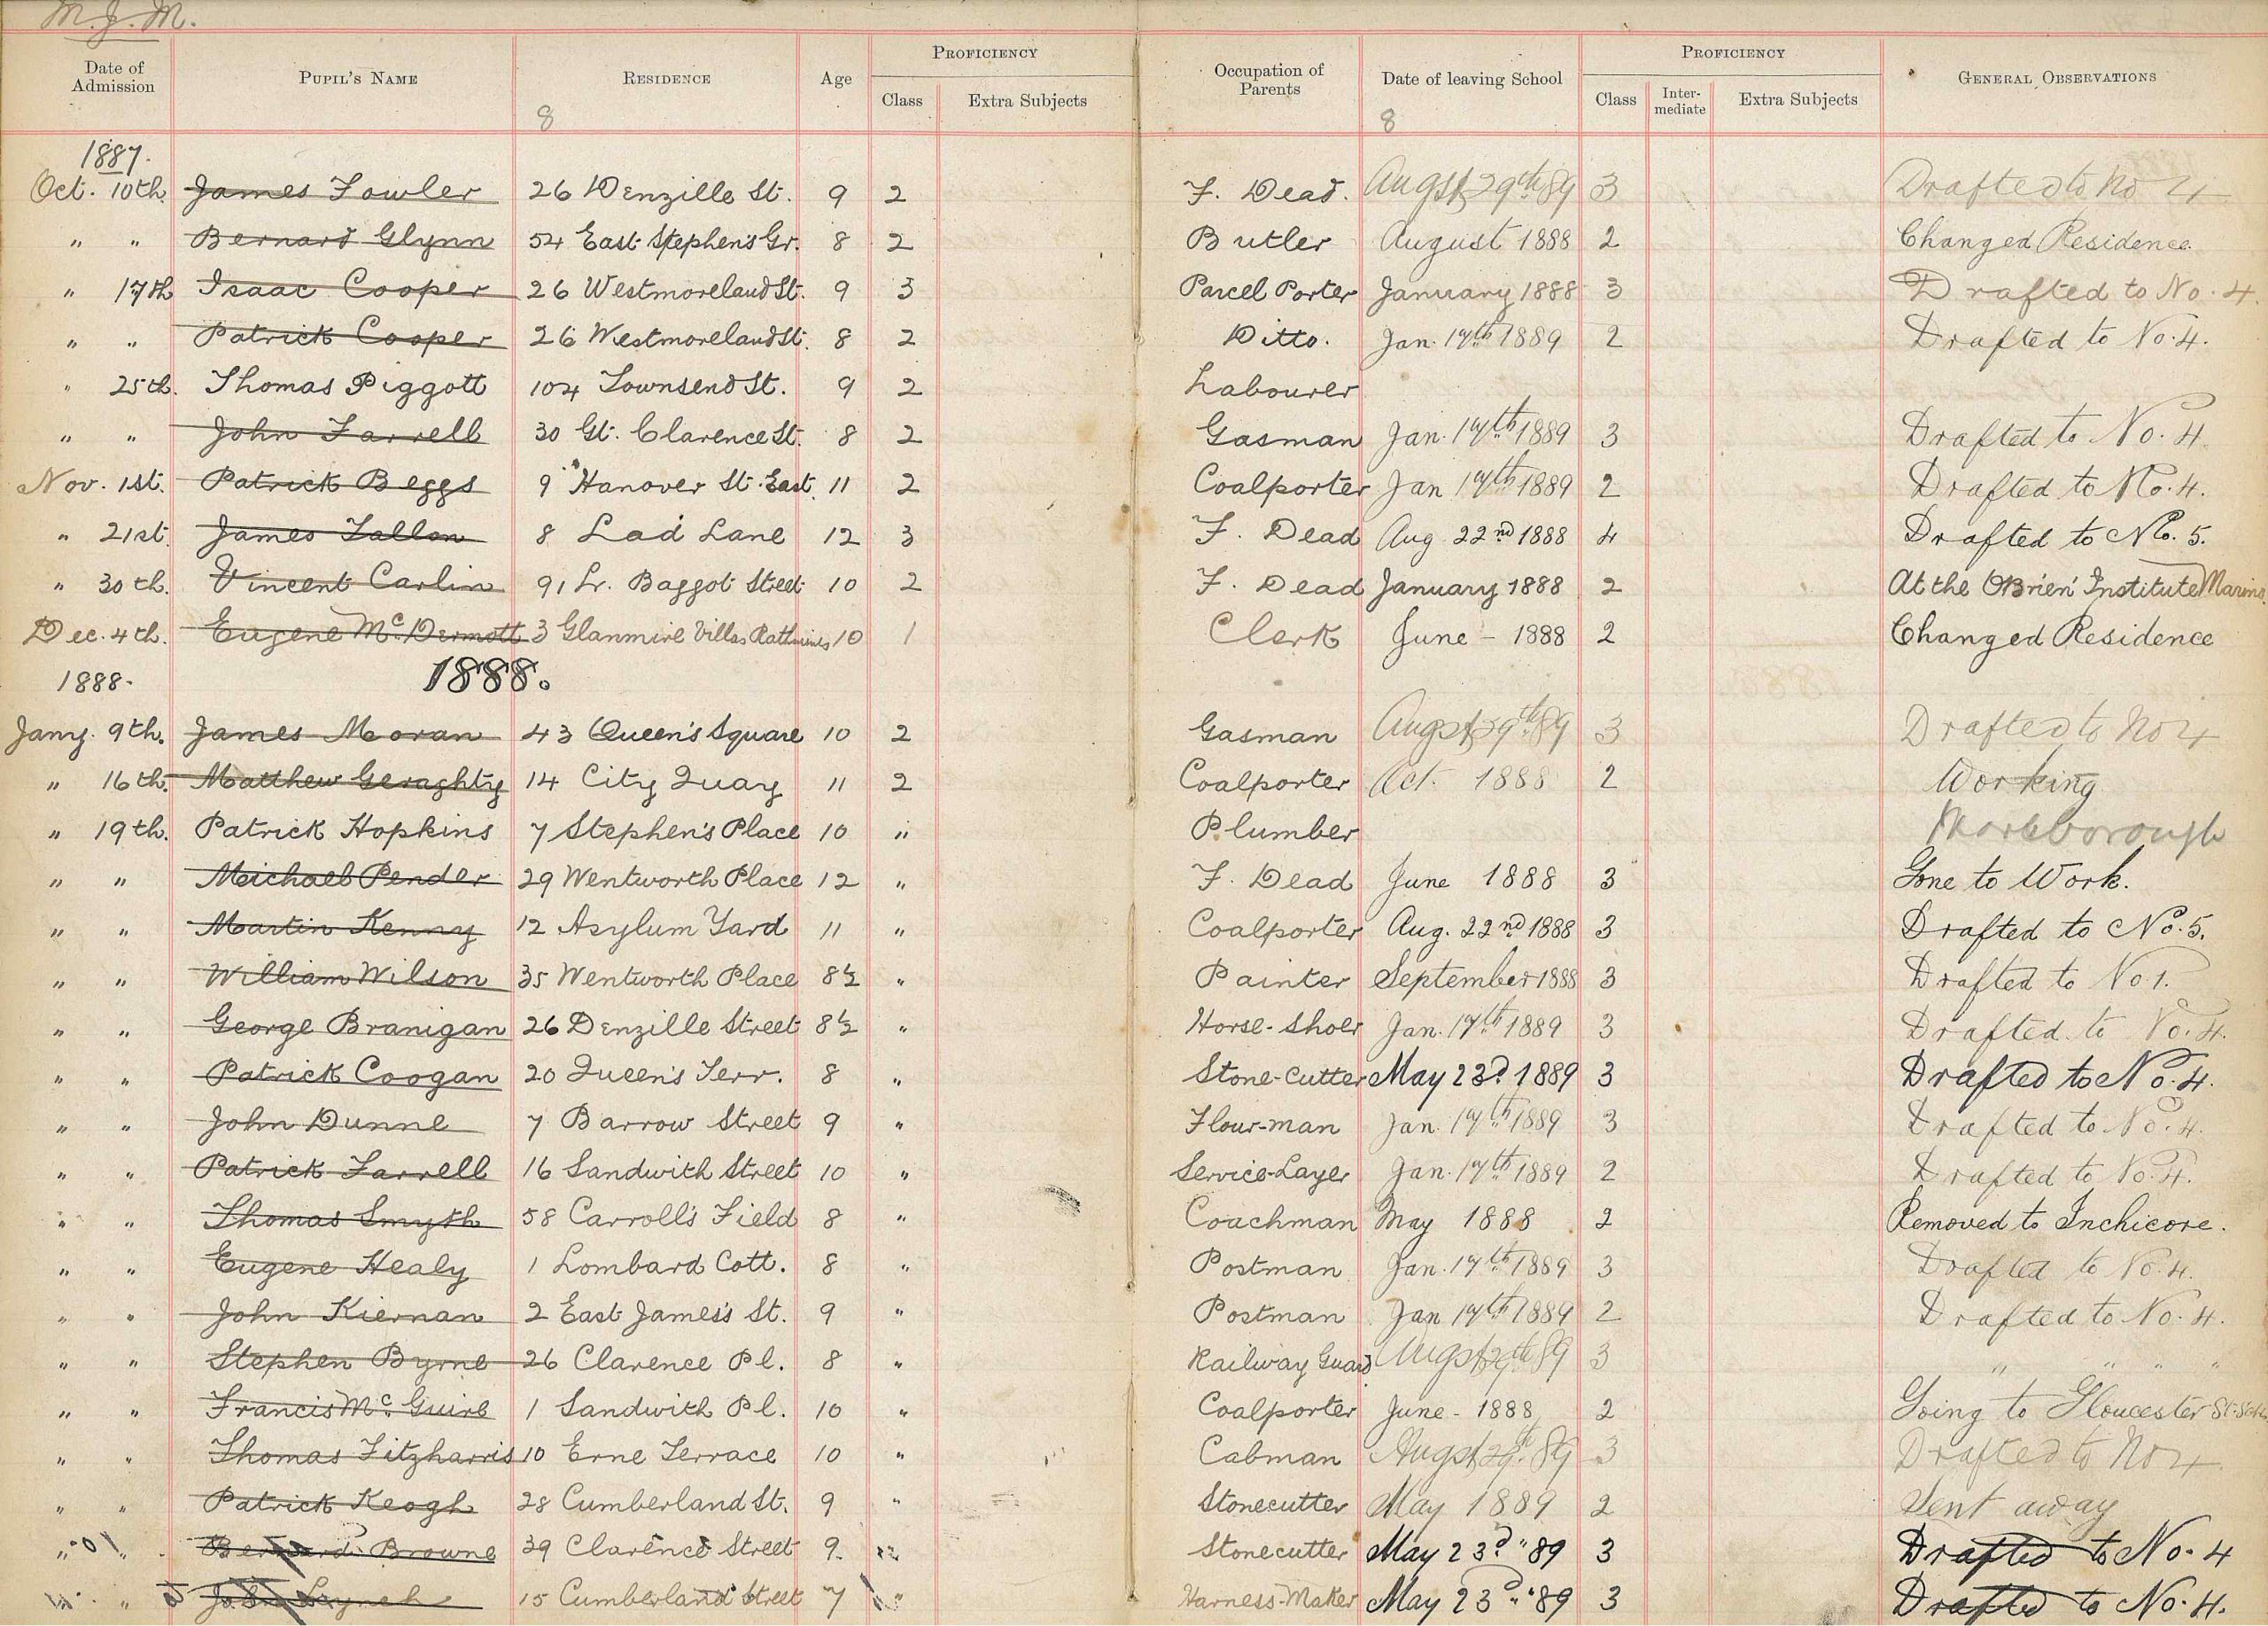 M. J. M.
Date of Admission PUPIL'S NAME RESIDENCE Age PROFICIENCY Class Extra Subjects Occupation of Parents Date of leaving School PROFICIENCY Class Inter-mediate Extra Subjects GENERAL OBSERVATIONS
8 8
1887.
Oct. 10th. James Fowler 26 Denzille St. 9 2 F. Dead. Augst 29th 89 3 Drafted to No 4
" " Bernard Glynn 54 East Stephen's Gr. 8 2 Butler August 1888 2 Changed Residence.
" 17th Isaac Cooper 26 Westmoreland St. 9 3 Parcel Porter January 1888 3 Drafted to No. 4.
" " Patrick Cooper 26 Westmoreland St. 8 2 Ditto. Jan. 17th 1889 2 Drafted to No. 4.
" 25th. Thomas Piggott 104 Townsend St. 9 2 Labourer
" " John Farrell 30 Gt. Clarence St. 8 2 Gasman Jan. 17th 1889 3 Drafted to No. 4.
Nov. 1st. Patrick Beggs 9 Hanover St. East. 11 2 Coalporter Jan 17th 1889 2 Drafted to No. 4.
" 21st. James Fallon 8 Lad Lane 12 3 F. Dead Aug. 22nd 1888 4 Drafted to No. 5.
" 30th. Vincent Carlin 91 Lr. Baggot Street 10 2 F. Dead January 1888 2 At the O'Brien Institute Marino
Dec. 4th. Eugene McDermott 3 Glanmire Villas Rathmines 10 1 Clerk June - 1888 2 Changed Residence
1888. 1888.
Jany. 9th. James Moran 43 Queen's Square 10 2 Gasman Augst 29th 89 3 Drafted to No 4
" 16th. Matthew Geraghty 14 City Quay 11 2 Coalporter Oct. 1888 2 Working
" 19th. Patrick Hopkins 7 Stephen's Place 10 " Plumber Marlborough
" " Michael Pender 29 Wentworth Place 12 " F. Dead June 1888 3 Gone to Work.
" " Martin Kenny 12 Asylum Yard 11 " Coalporter Aug. 22nd 1888 3 Drafted to No. 5.
" " William Wilson 35 Wentworth Place 8½ " Painter September 1888 3 Drafted to No 1.
" " George Branigan 26 Denzille Street 8½ " Horse-Shoer Jan. 17th 1889 3 Drafted to No. 4.
" " Patrick Coogan 20 Queen's Terr. 8 " Stone-Cutter May 23d 1889 3 Drafted to No. 4.
" " John Dunne 7 Barrow Street 9 " Flour-man Jan. 17th 1889 3 Drafted to No. 4.
" " Patrick Farrell 16 Sandwith Street 10 " Service-Layer Jan. 17th 1889 2 Drafted to No. 4.
" " Thomas Smyth 58 Carroll's Field 8 " Coachman May 1888 2 Removed to Inchicore.
" " Eugene Healy 1 Lombard Cott. 8 " Postman Jan. 17th 1889 3 Drafted to No. 4.
" " John Kiernan 2 East James's St. 9 " Postman Jan 17th 1889 2 Drafted to No. 4.
" " Stephen Byrne 26 Clarence Pl. 8 " Railway Guard Augst 29th 89 3 " " " "
" " Francis McGuire 1 Sandwith Pl. 10 " Coalporter June - 1888 2 Going to Gloucester St.
" " Thomas Fitzharris 10 Erne Terrace 10 " Cabman Augst 29th 89 3 Drafted to No 4
" " Patrick Keogh 28 Cumberland St. 9 " Stonecutter May 1889 2 Sent away
" " Bernard Browne 39 Clarence Street 9. " Stonecutter May 23d " 89 3 Drafted to No. 4
" " John Lynch 15 Cumberland Street 7 " Harness-Maker May 23d " 89 3 Drafted to No. 4.